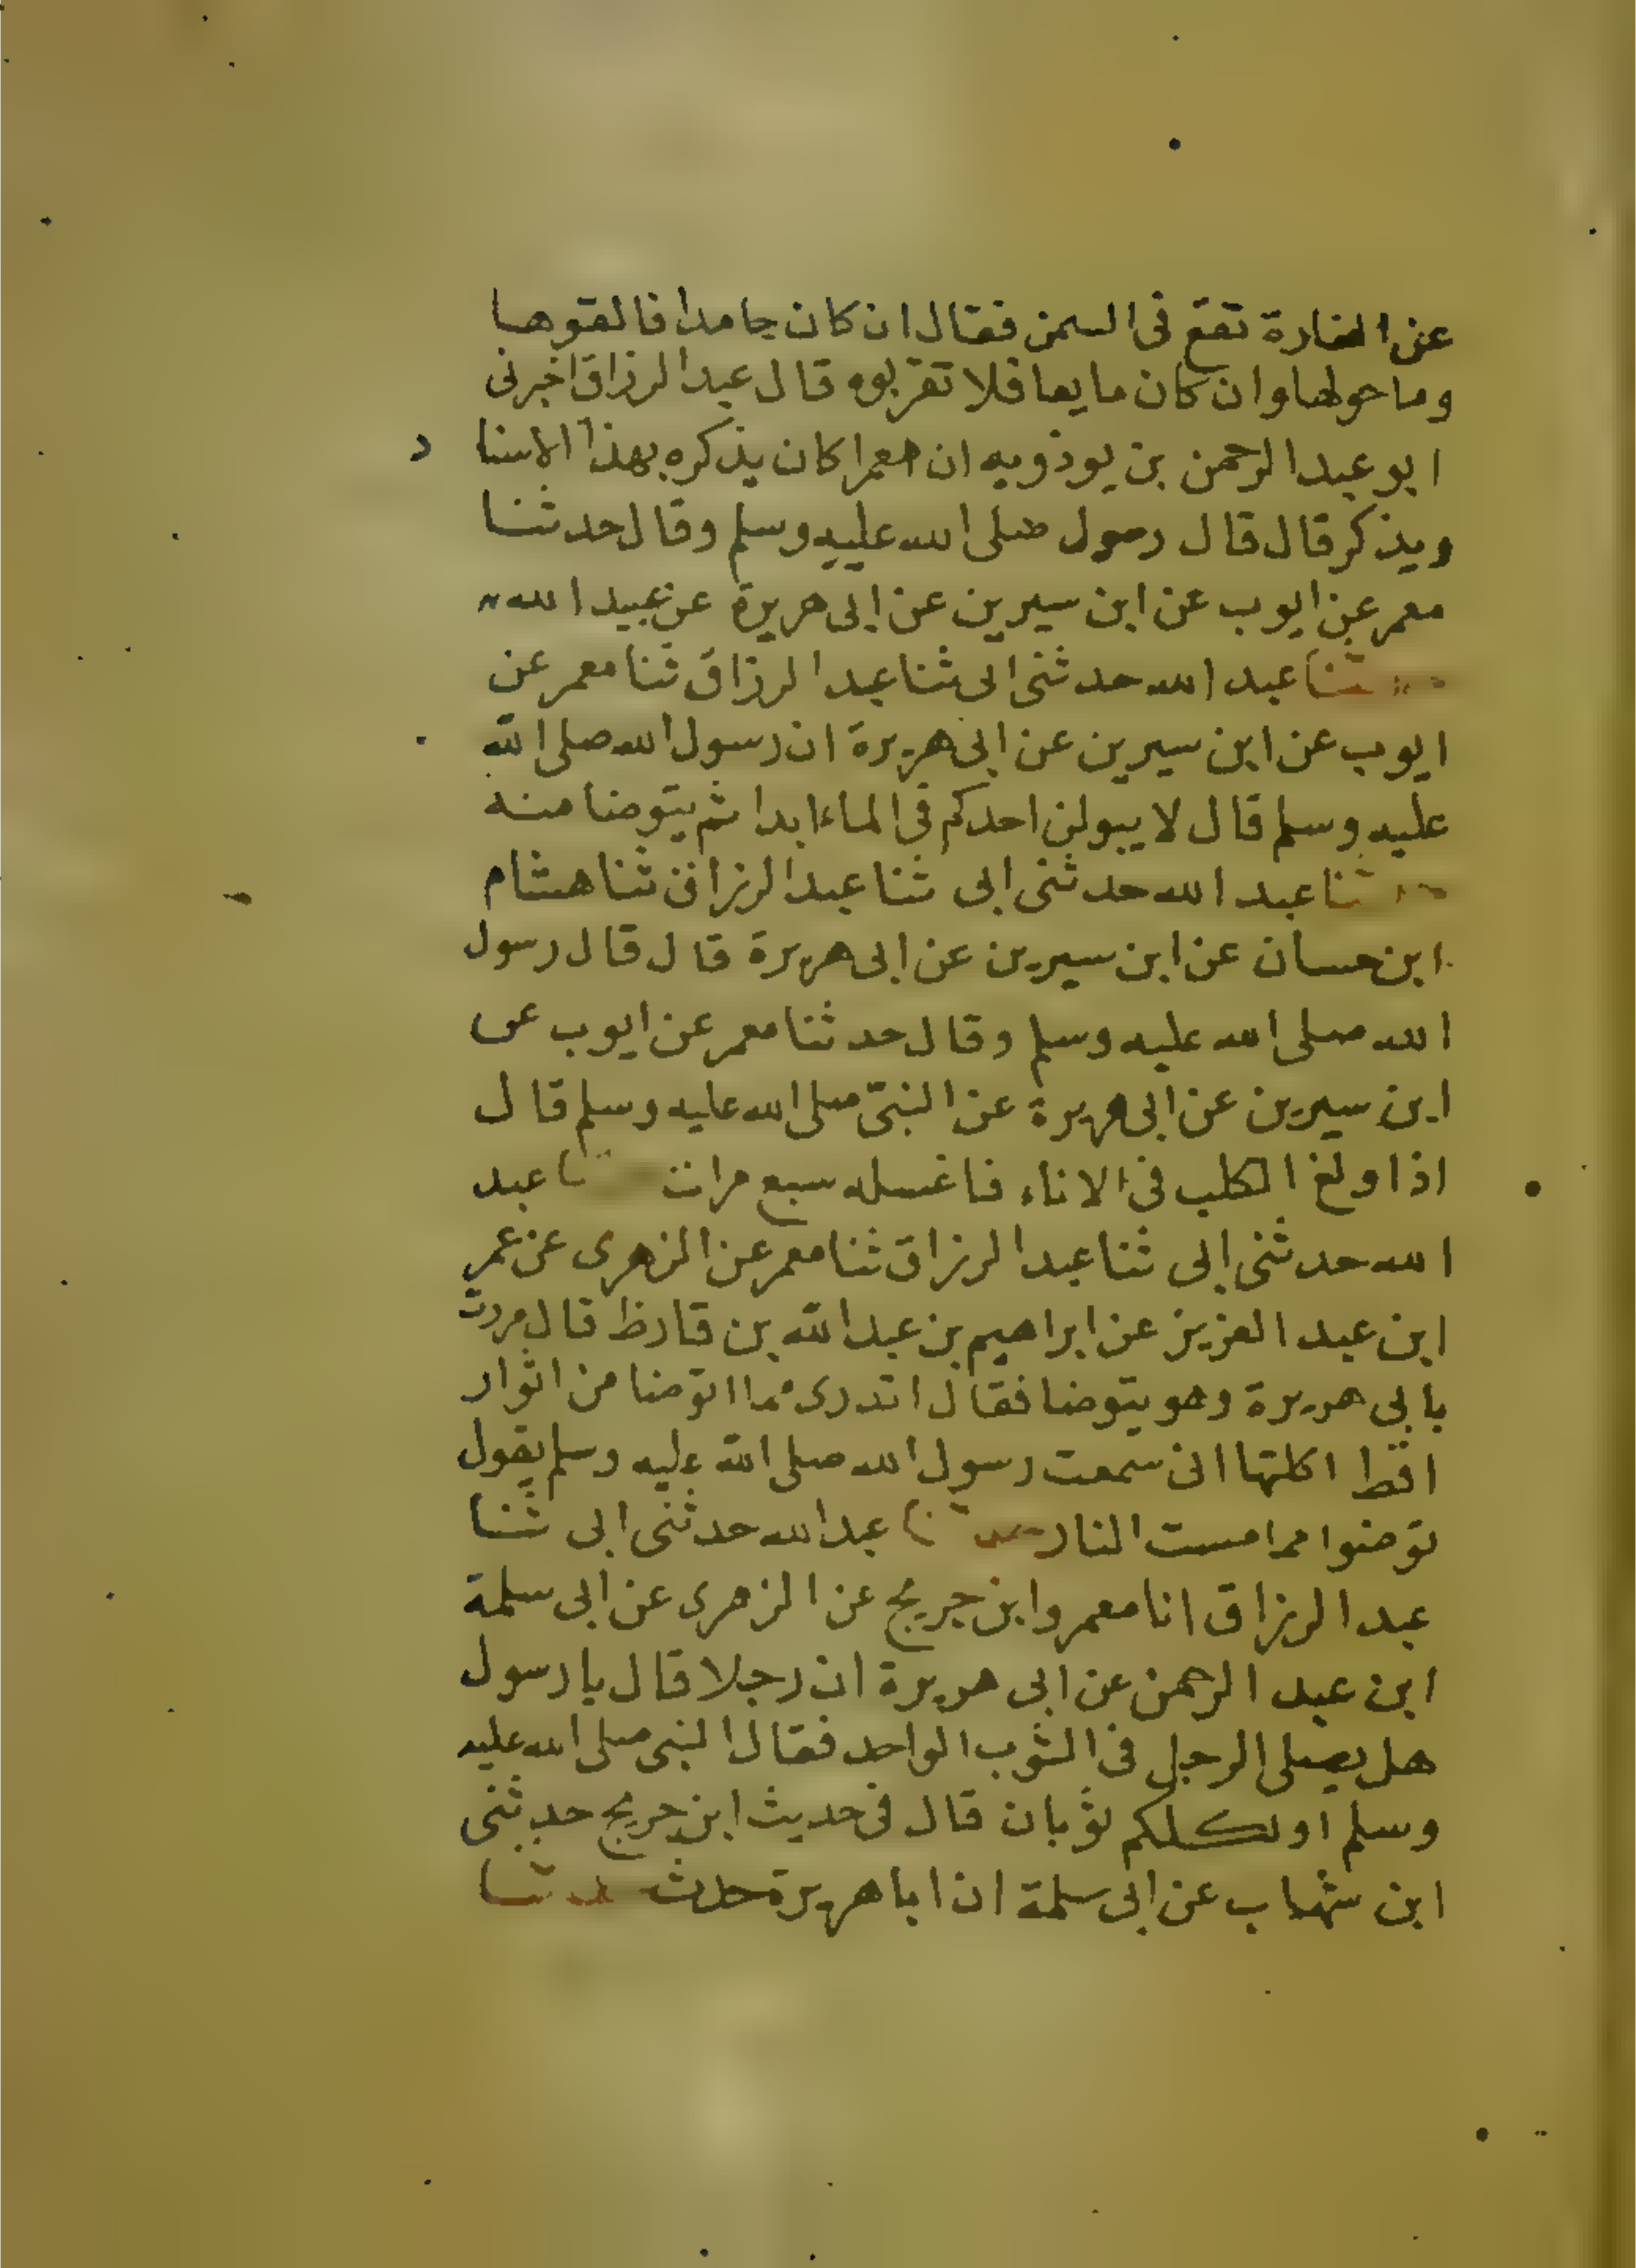 عن الفارة تقع في السمن فقال ان كان جامدا فالقوها
وما حولها وان كان مايعا فلا تقربوه قال عبد الرزاق اخبرنى
ابو عبد الرحمن بن بوذويه ان معمرا كان يذكره بهذا الاسناد
ويذكر قال قال رسول صلى الله عليه وسلم وقال حدثنا
معمر عن ايوب عن ابن سيرين عن ابى هريرة عن عبيد الله
ثنا عبد الله حدثنى ابى ثنا عبد الرزاق ثنا معمر عن
ايوب عن ابن سيرين عن ابى هريرة ان رسول الله صلى الله
عليه وسلم قال لا يبولن احدكم في الماء ابدا ثم يتوضا منه
ثنا عبد الله حدثنى ابى ثنا عبد الرزاق ثنا هشام
ابن حسان عن ابن سيرين عن ابى هريرة قال قال رسول
الله صلى الله عليه وسلم وقال حدثنا معمر عن ايوب عن
ابن سيرين عن ابى هريرة عن النبى صلى الله عليه وسلم قال
اذا ولغ الكلب في الاناء فاغسله سبع مرات عبد
الله حدثنى ابى ثنا عبد الرزاق ثنا معمر عن الزهرى عن عمر
ابن عبد العزيز عن ابراهيم بن عبد الله بن قارظ قال مررت
بابى هريرة وهو يتوضا فقال اتدرى مما اتوضا من اثوار
اقط اكلتها انى سمعت رسول الله صلى الله عليه وسلم يقول
توضئوا مما مست النار عبد الله حدثنى ابى ثنا
عبد الرزاق انا معمر وابن جريج عن الزهرى عن ابى سلمة
ابن عبد الرحمن عن ابى هريرة ان رجلا قال يا رسول
هل يصلى الرجل في الثوب الواحد فقال النبى صلى الله عليه
وسلم اولكلكم ثوبان قال في حديث ابن جريج حدثنى
ابن شهاب عن ابى سلمة ان ابا هريرة حدث حدثنا